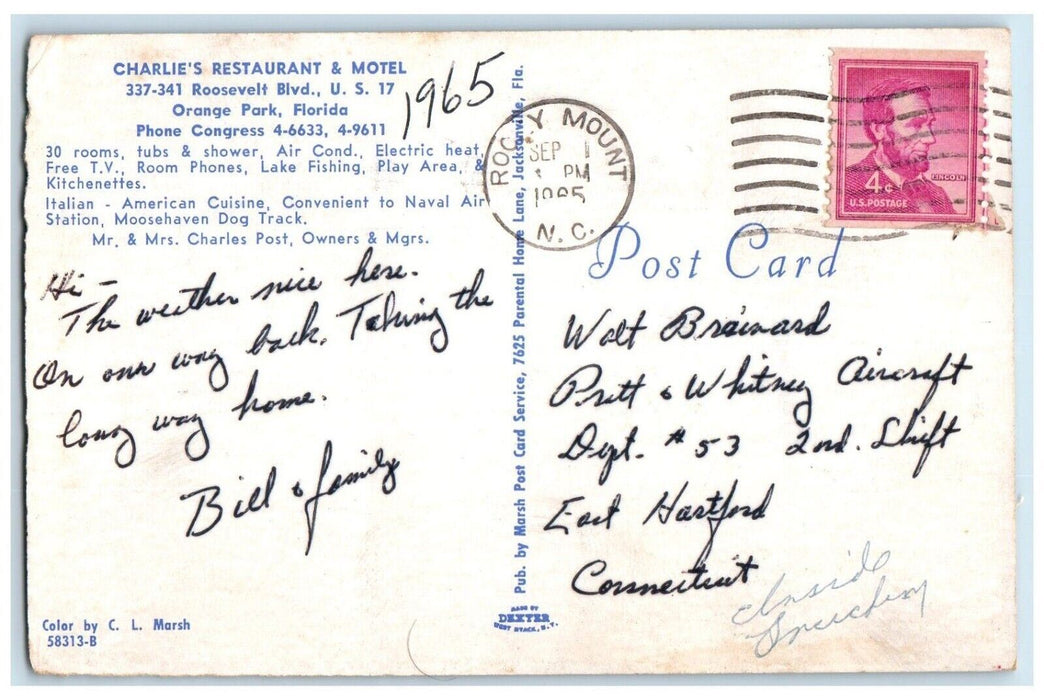 CHARLIE'S RESTAURANT & MOTEL
337-341 Roosevelt Blvd., U. S. 17
Orange Park, Florida
Phone Congress 4-6633, 4-9611
30 rooms, tubs & shower, Air Cond., Electric heat,
Free T.V., Room Phones, Lake Fishing, Play Area, &
Kitchenettes.
Italian - American Cuisine, Convenient to Naval Air
Station, Moosehaven Dog Track.
Mr. & Mrs. Charles Post, Owners & Mgrs.
1965
Hi -
The weather nice here.
On our way back. Taking the
long way home.
Bill & family
Color by C. L. Marsh
58313-B
Pub. by Marsh Post Card Service, 7625 Parental Home Lane, Jacksonville, Fla.
MADE BY
DEXTER
WEST NYACK, N.Y.
ROCKY MOUNT
SEP 1
PM
1965
N. C.
LINCOLN
4¢
U.S. POSTAGE
Post Card
Walt Brainard
Pratt & Whitney Aircraft
Dept. #53 2nd. Shift
East Hartford
Connecticut
Inside